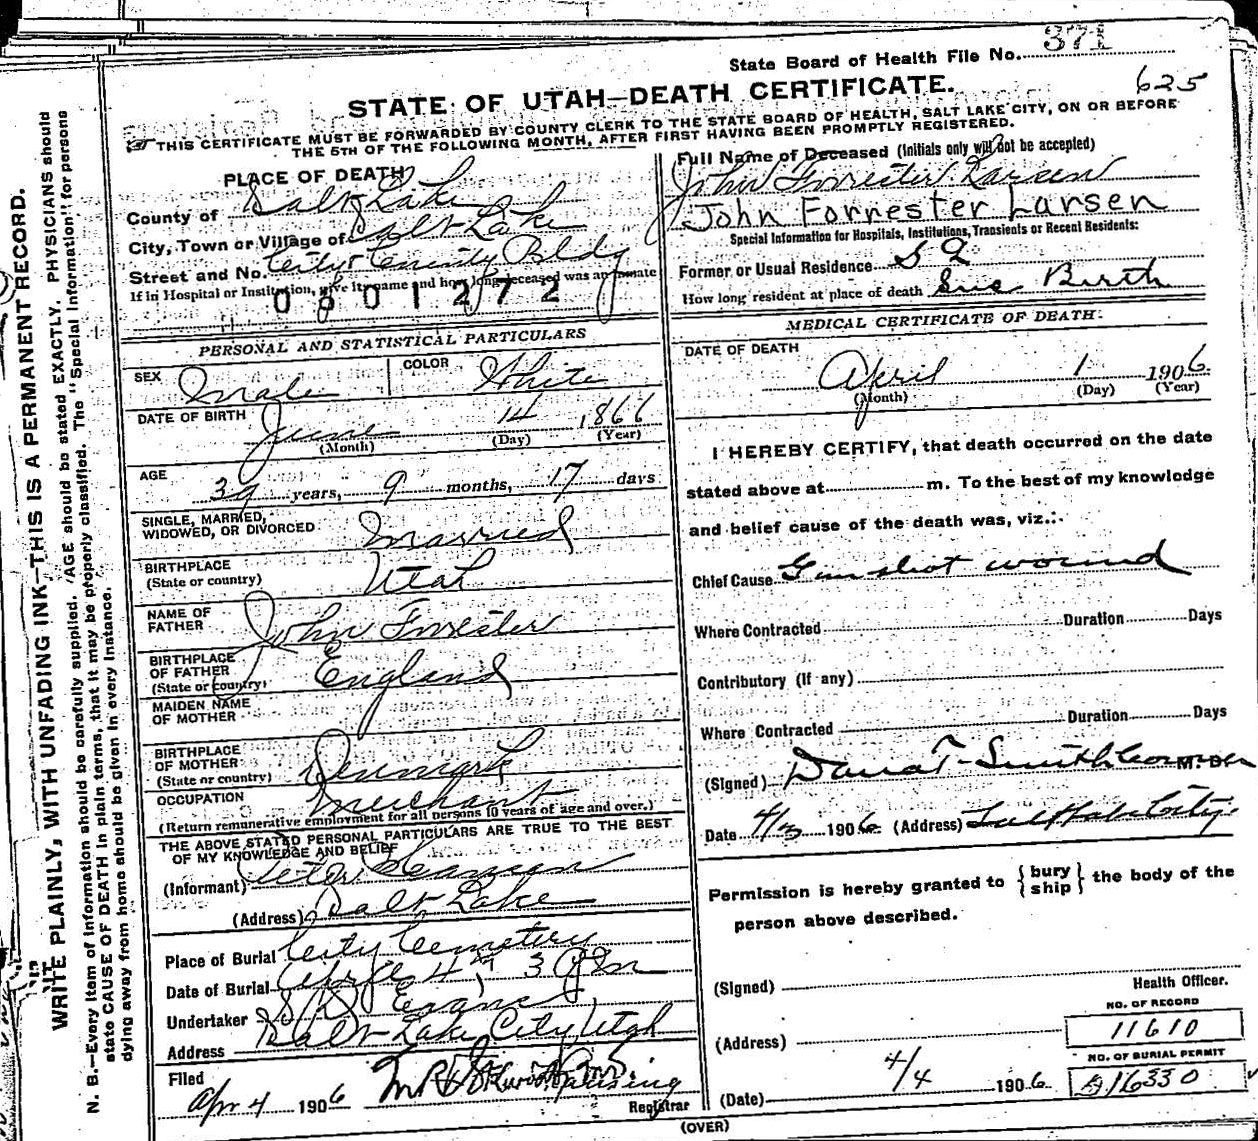 State Board of Health File No. 371
625
STATE OF UTAH—DEATH CERTIFICATE.
THIS CERTIFICATE MUST BE FORWARDED BY COUNTY CLERK TO THE STATE BOARD OF HEALTH, SALT LAKE CITY, ON OR BEFORE
THE 5TH OF THE FOLLOWING MONTH, AFTER FIRST HAVING BEEN PROMPTLY REGISTERED.
PLACE OF DEATH
County of Salt Lake
City, Town or Village of Salt Lake
Street and No. City & County Bldg
If in Hospital or Institution, give its name and how long deceased was an inmate
0601272
Full Name of Deceased (Initials only will not be accepted)
John Forrester Larsen
John Forrester Larsen
Special Information for Hospitals, Institutions, Transients or Recent Residents:
Former or Usual Residence S L
How long resident at place of death Since Birth
PERSONAL AND STATISTICAL PARTICULARS
SEX Male
COLOR White
DATE OF BIRTH June 14 1866
(Month) (Day) (Year)
AGE 39 years, 9 months, 17 days
SINGLE, MARRIED,
WIDOWED, OR DIVORCED Married
BIRTHPLACE
(State or country) Utah
NAME OF
FATHER John Forrester
BIRTHPLACE
OF FATHER
(State or country) England
MAIDEN NAME
OF MOTHER
BIRTHPLACE
OF MOTHER
(State or country) Denmark
OCCUPATION Merchant
(Return remunerative employment for all persons 10 years of age and over.)
THE ABOVE STATED PERSONAL PARTICULARS ARE TRUE TO THE BEST
OF MY KNOWLEDGE AND BELIEF
(Informant) Peter
(Address) Salt Lake
Place of Burial City Cemetery
Date of Burial April 4th 3 PM
Undertaker S D Evans
Address Salt Lake City Utah
Filed
Apr 4 1906
Registrar
MEDICAL CERTIFICATE OF DEATH.
DATE OF DEATH
April 1 1906
(Month) (Day) (Year)
I HEREBY CERTIFY, that death occurred on the date
stated above at m. To the best of my knowledge
and belief cause of the death was, viz.:
Chief Cause Gun shot wound
Where Contracted Duration Days
Contributory (If any)
Where Contracted Duration Days
(Signed) Dana T. Smith Coroner M. D.
Date 4/3 1906 (Address) Salt Lake City
Permission is hereby granted to {bury
ship} the body of the
person above described.
(Signed)
Health Officer.
(Address)
NO. OF RECORD
11610
NO. OF BURIAL PERMIT
16330
4/4 1906
(Date)
(OVER)
WRITE PLAINLY, WITH UNFADING INK—THIS IS A PERMANENT RECORD.
N. B.—Every item of information should be carefully supplied. AGE should be stated EXACTLY. PHYSICIANS should
state CAUSE OF DEATH in plain terms, that it may be properly classified. The "Special Information" for persons
dying away from home should be given in every instance.